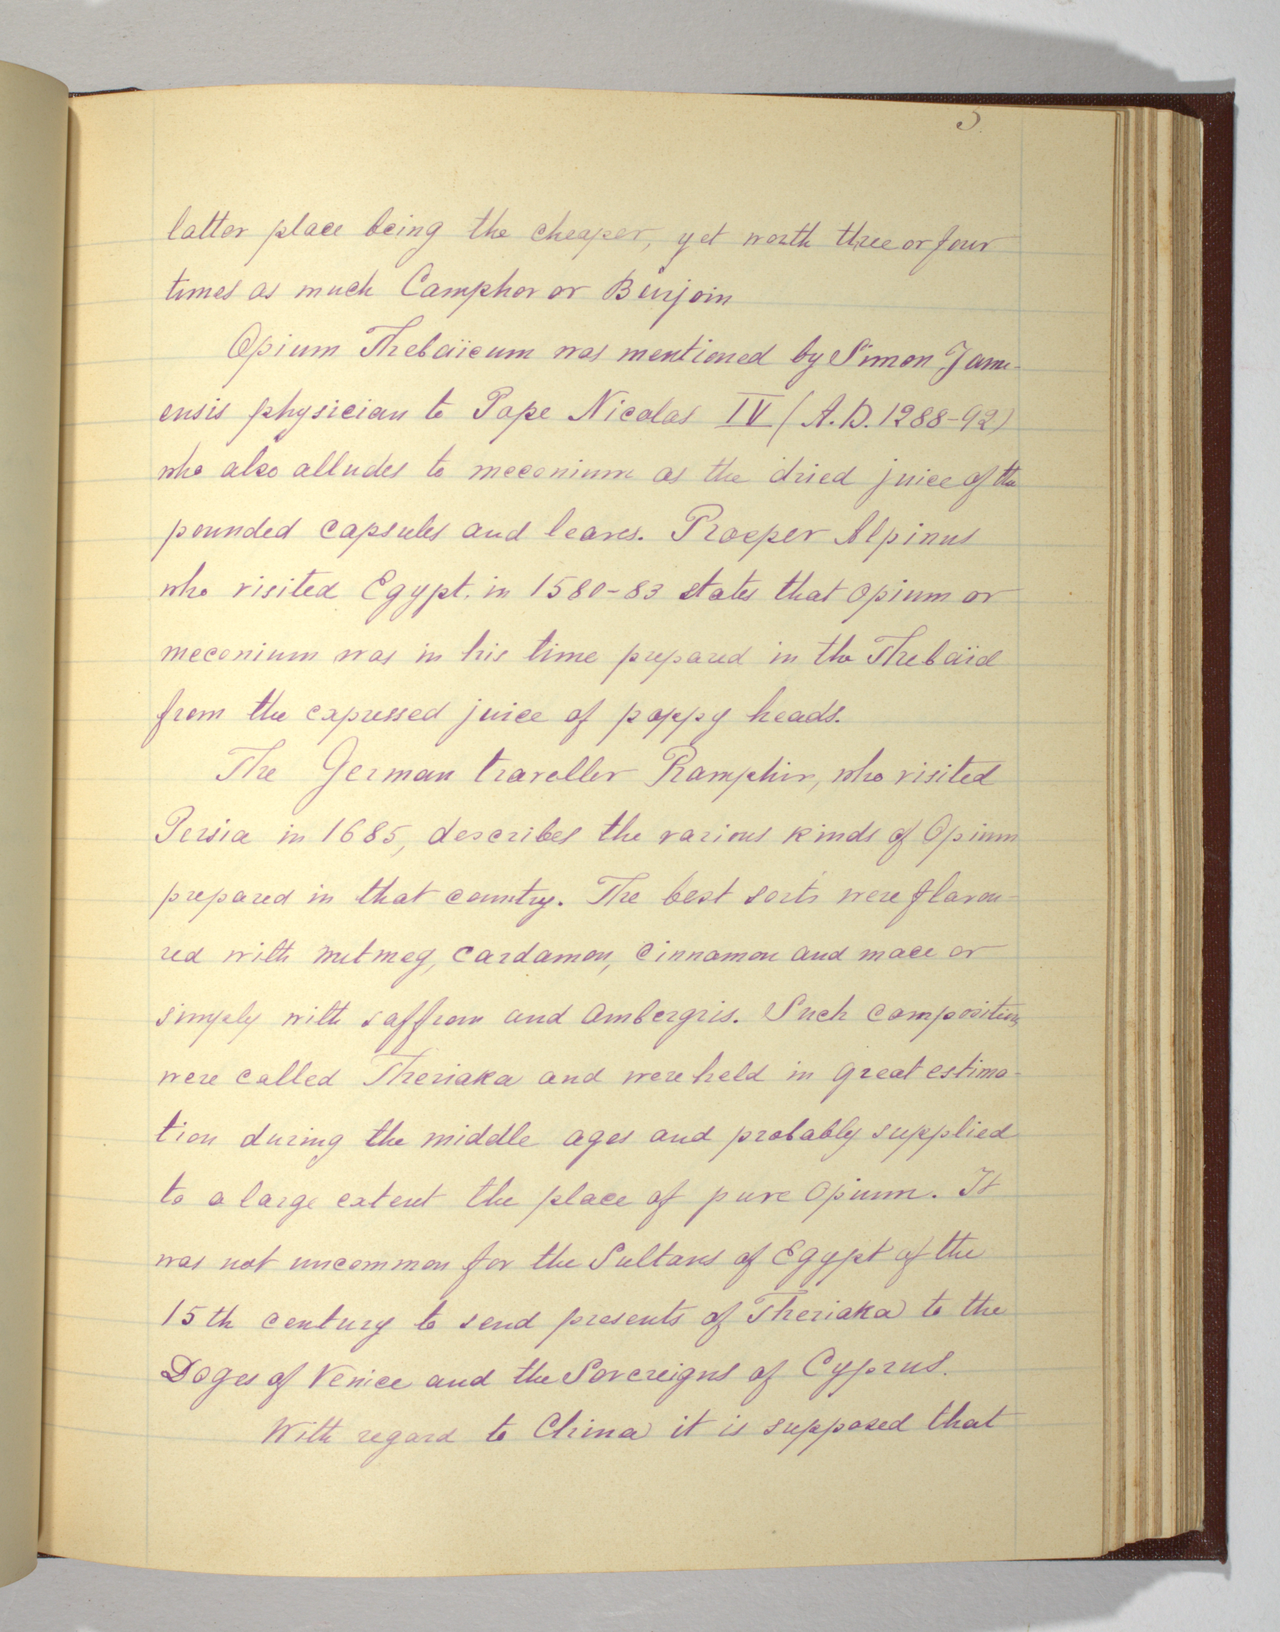 latter place being the cheaper, yet worth three or four
times as much Camphor or Binjoin
Opium Thebaïcum was mentioned by Simon Janu-
ensis physician to Pope Nicolas IV (A.D. 1288-92)
who also alludes to meconium as the dried juice of the
pounded capsules and leaves. Prosper Alpinus
who visited Egypt, in 1580-83 states that opium or
meconium was in his time prepared in the Thebaïd
from the expressed juice of poppy heads.
The German traveller Ramphir, who visited
Persia in 1685, describes the various kinds of Opium
prepared in that country. The best sorts were flavou-
red with nutmeg, cardamon, cinnamon and mace or
simply with saffron and ambergris. Such compositions
were called Theriaka and were held in great estima-
tion during the middle ages and probably supplied
to a large extent the place of pure opium. It
was not uncommon for the Sultans of Egypt of the
15th century to send presents of Theriaka to the
Doges of Venice and the Sovereigns of Cyprus.
With regard to China it is supposed that